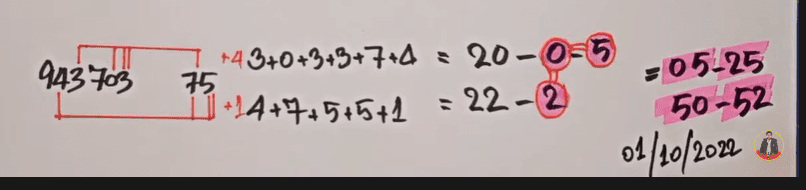 943703 75
+4 3+0+3+3+7+4 = 20-0-5
+1 4+7+5+5+1 = 22-2
= 05-25
50-52
01/10/2022